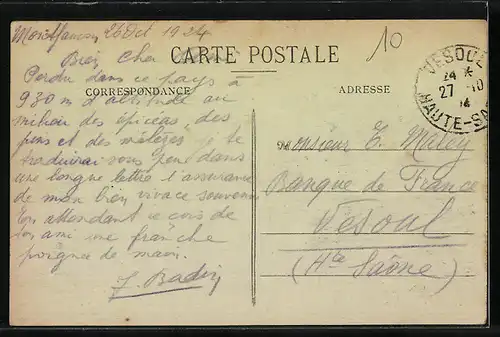 26 Oct 1924
10
CARTE POSTALE
Bien Cher
Perdu dans ce pays à
CORRESPONDANCE
ADRESSE
930 m d'altitude au
milieu des épiceas, des
pins et des mélèzes, je te
traduirai sous peu dans
une longue lettre l'assurance
de mon bien vivace souvenir
En attendant
ton ami une franche
poignée de main.
J. Badin
VESOUL
24
27 -10
14
HAUTE-SA
Monsieur E. Maley
Banque de France
Vesoul
(Hte Saône)